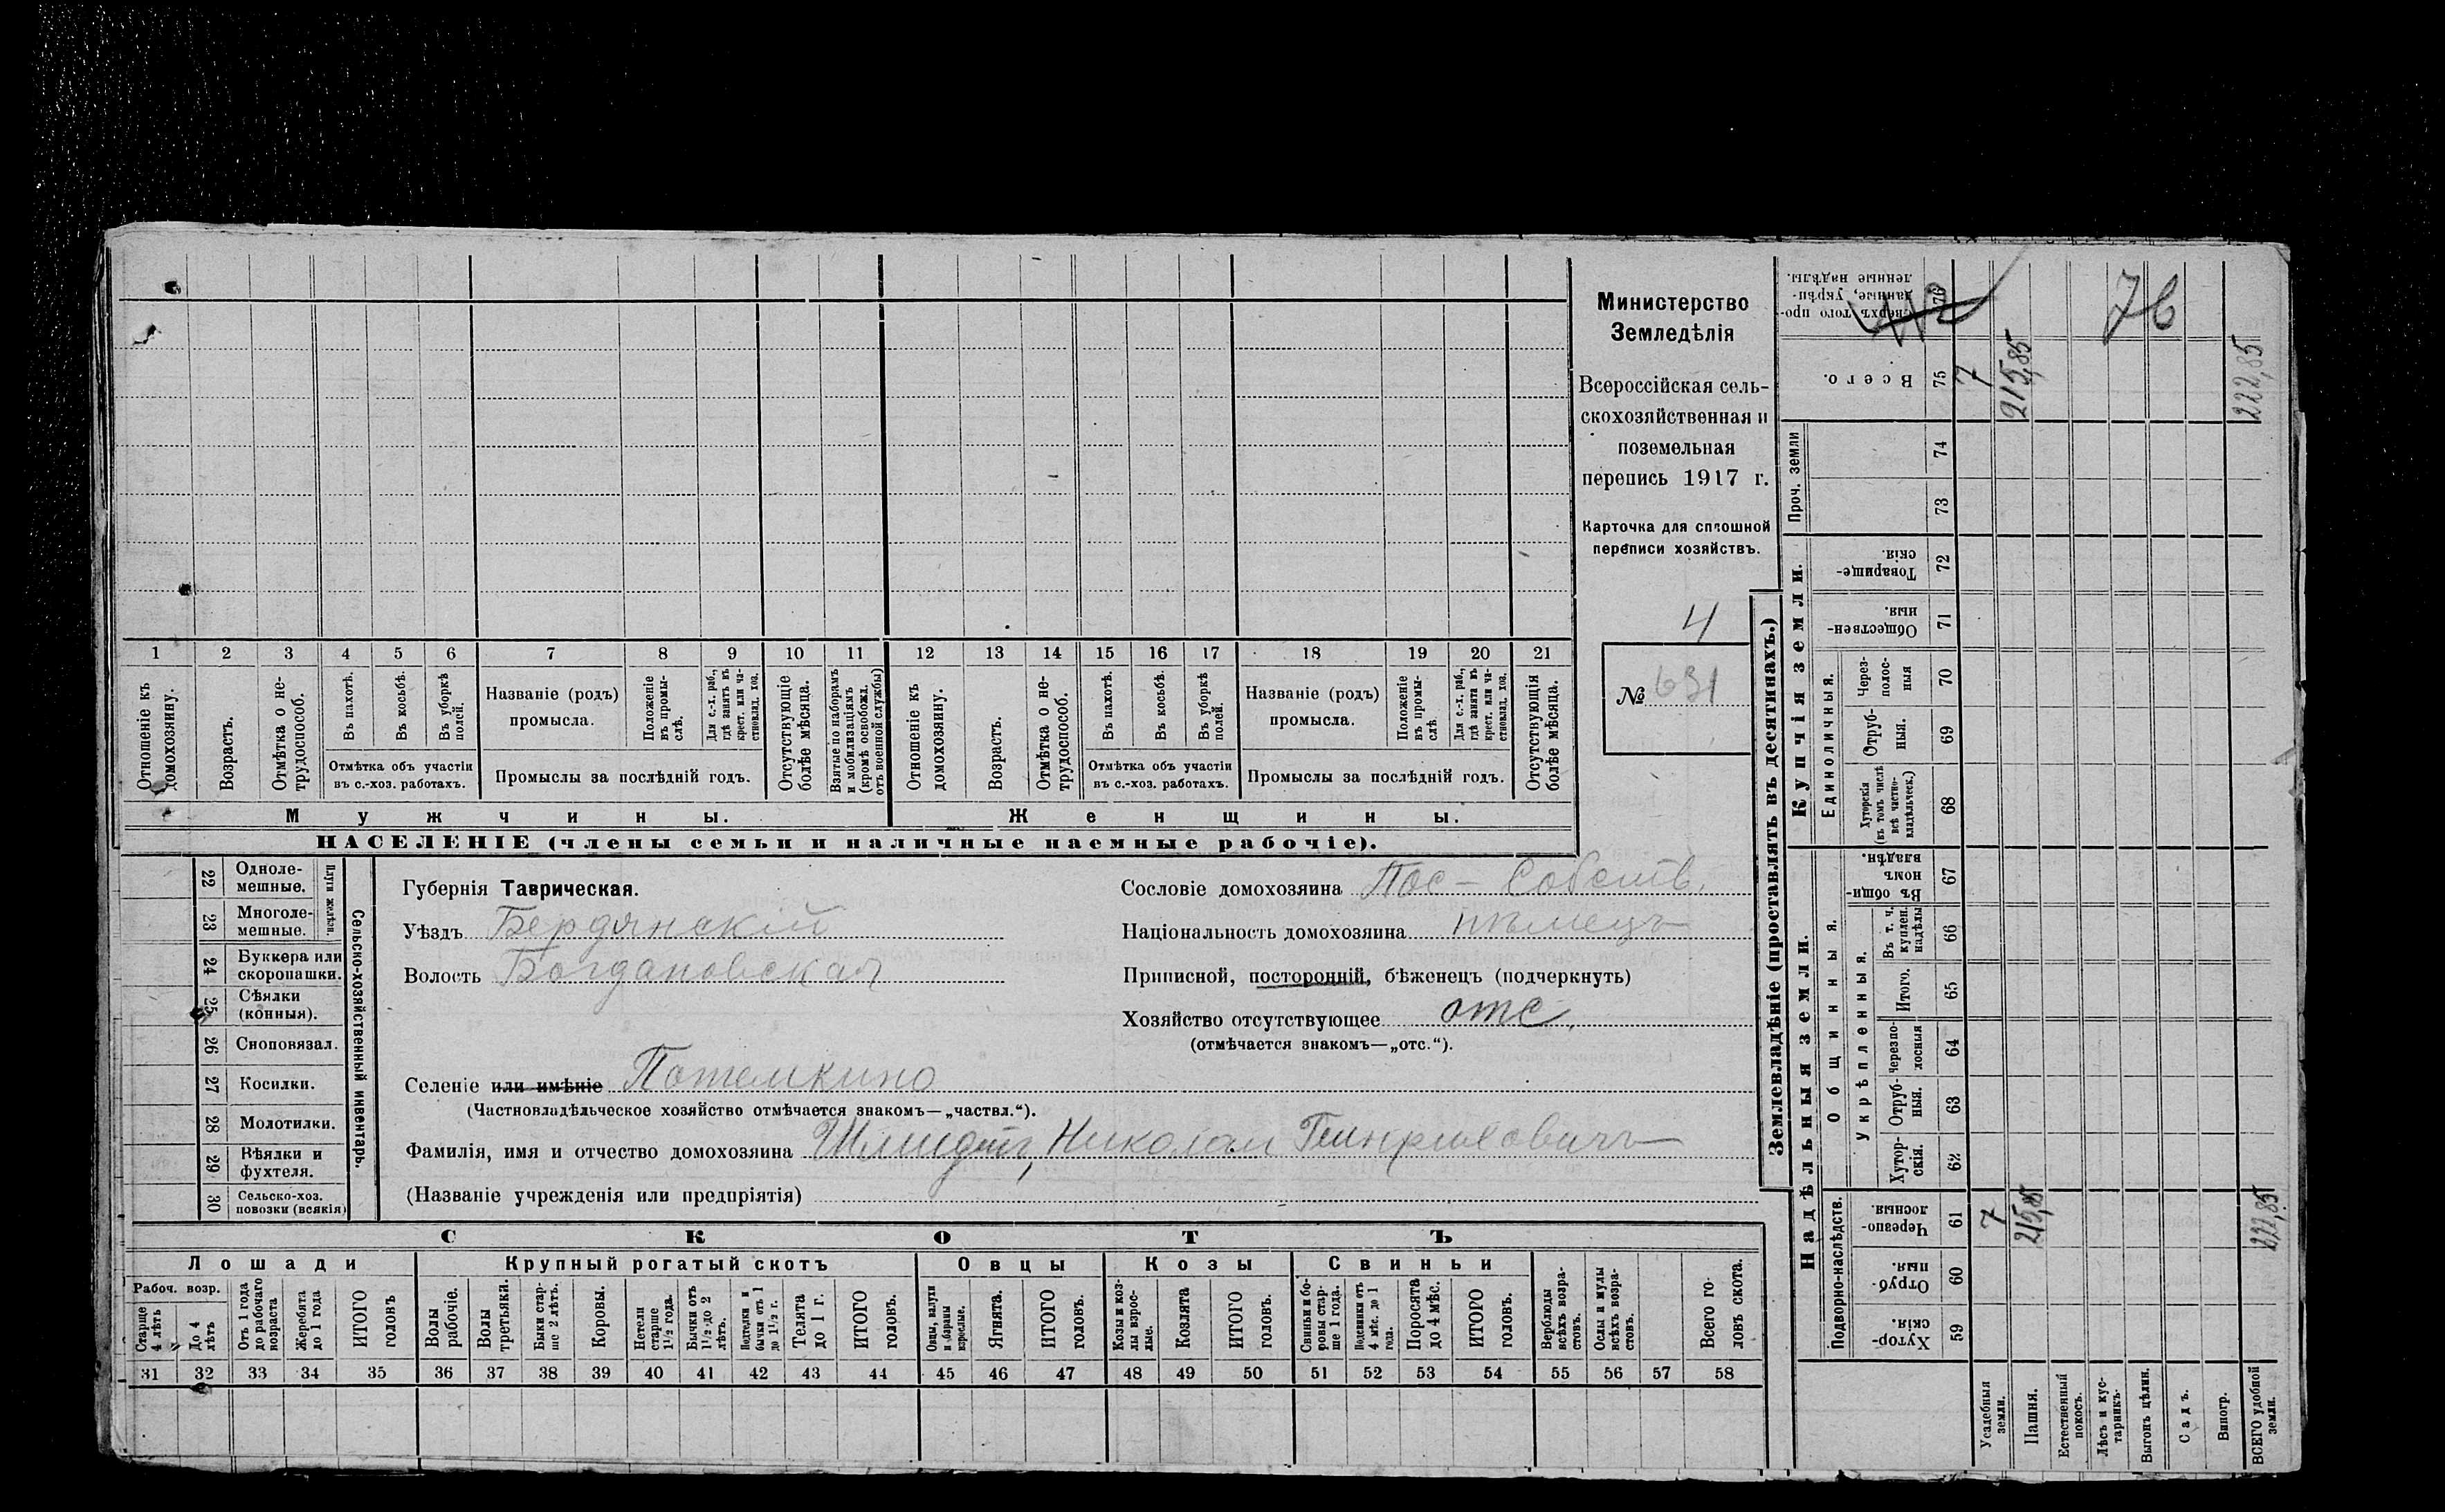 Министерство
Земледѣлія
Всероссійская сель-
скохозяйственная и
поземельная
перепись 1917 г.
Карточка для сплошной
переписи хозяйствъ.
4
№ 631
1 2 3 4 5 6 7 8 9 10 11 12 13 14 15 16 17 18 19 20 21
Отношеніе къ домохозяину.
Возрастъ.
Отмѣтка о не-трудоспособ.
Въ пахотѣ.
Въ косьбѣ.
Въ уборкѣ полей.
Отмѣтка объ участіи
въ с.-хоз. работахъ.
Названіе (родъ)
промысла.
Положеніе въ промы-слѣ.
Для с.-х. раб., гдѣ занятъ въ крест. или ча-стновлад. хоз.
Промыслы за послѣдній годъ.
Отсутствующіе болѣе мѣсяца.
Взятые по наборамъ и мобилизаціямъ (кромѣ освобожд. отъ военной службы)
Отношеніе къ домохозяину.
Возрастъ.
Отмѣтка о не-трудоспособ.
Въ пахотѣ.
Въ косьбѣ.
Въ уборкѣ полей.
Отмѣтка объ участіи
въ с.-хоз. работахъ.
Названіе (родъ)
промысла.
Положеніе въ промы-слѣ.
Для с.-х. раб., гдѣ занята въ крест. или ча-стновлад. хоз.
Промыслы за послѣдній годъ.
Отсутствующія болѣе мѣсяца.
Мужчины.
Женщины.
НАСЕЛЕНІЕ (члены семьи и наличные наемные рабочіе).
22 Одноле-мешные.
23 Многоле-мешные.
Плуги желѣзн.
24 Буккера или скоропашки.
25 Сѣялки (конныя).
26 Сноповязал.
27 Косилки.
28 Молотилки.
29 Вѣялки и фухтеля.
30 Сельско-хоз. повозки (всякія)
Сельско-хозяйственный инвентарь.
Губернія Таврическая.
Уѣздъ Бердянскій
Волость Богдановская
Сословіе домохозяина Пос- Собств.
Національность домохозяина нѣмецъ
Приписной, посторонній, бѣженецъ (подчеркнуть)
Хозяйство отсутствующее отс.
(отмѣчается знакомъ—„отс.“).
Селеніе или имѣніе Потемкино
(Частновладѣльческое хозяйство отмѣчается знакомъ—„частвл.“).
Фамилія, имя и отчество домохозяина Шмидтъ, Николай Генриховичъ
(Названіе учрежденія или предпріятія)
СКОТЪ
Лошади
Крупный рогатый скотъ
Овцы
Козы
Свиньи
Рабоч. возр.
Старше 4 лѣтъ
До 4 лѣтъ
Отъ 1 года до рабочаго возраста
Жеребята до 1 года
ИТОГО головъ
Волы рабочіе.
Волы третьяки.
Быки стар-ше 2 лѣтъ.
Коровы.
Нетели старше 1½ года.
Бычки отъ 1½ до 2 лѣтъ.
Подтелки и бычки отъ 1 до 1½ г.
Телята до 1 г.
ИТОГО головъ.
Овцы, валухи и бараны взрослые.
Ягнята.
ИТОГО головъ.
Козы и коз-лы взрос-лые.
Козлята
ИТОГО головъ.
Свиньи и бо-ровы стар-ше 1 года.
Подсвинки отъ 4 мѣс. до 1 года.
Поросята до 4 мѣс.
ИТОГО головъ.
Верблюды всѣхъ возра-стовъ.
Ослы и мулы всѣхъ возра-стовъ.
Всего го-ловъ скота.
31 32 33 34 35 36 37 38 39 40 41 42 43 44 45 46 47 48 49 50 51 52 53 54 55 56 57 58
Землевладѣніе (проставлять въ десятинахъ.)
Сверхъ того про-данные, укрѣп-ленные надѣлы. 76
76
Всего. 75 7 215,85 222,85
Проч. земли 74 73
Купчія земли.
Товарище-скія. 72
Обществен-ныя. 71
Единоличныя.
Через-полос-ныя 70
Отруб-ныя. 69
Хуторскія (въ томъ числѣ всѣ частно-владѣльческ.) 68
Надѣльныя земли.
Общинныя.
Въ общи-номъ владѣн. 67
Укрѣпленныя.
Въ т. ч. куплен. надѣлы 66
Итого. 65
Черезпо-лосныя 64
Отруб-ныя. 63
Хутор-скія. 62
Подворно-наслѣдств.
Черезпо-лосныя. 61 7 215,85 222,85
Отруб-ныя. 60
Хутор-скія. 59
Усадебныя земли.
Пашня.
Естественный покосъ.
Лѣсъ и кус-тарникъ.
Выгонъ цѣлин.
Садъ.
Виногр.
ВСЕГО удобной земли.